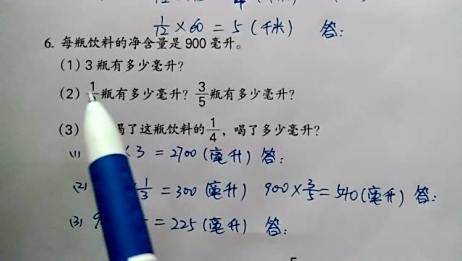 1/12 × 60 = 5 (千米) 答:
6. 每瓶饮料的净含量是 900 毫升。
(1) 3 瓶有多少毫升?
(2) 瓶有多少毫升? 3/5 瓶有多少毫升?
(3) 喝了这瓶饮料的 1/4, 喝了多少毫升?
(1) × 3 = 2700 (毫升) 答:
(2) 1/3 = 300 (毫升) 900 × 3/5 = 540 (毫升) 答:
(3) 9 = 225 (毫升) 答: